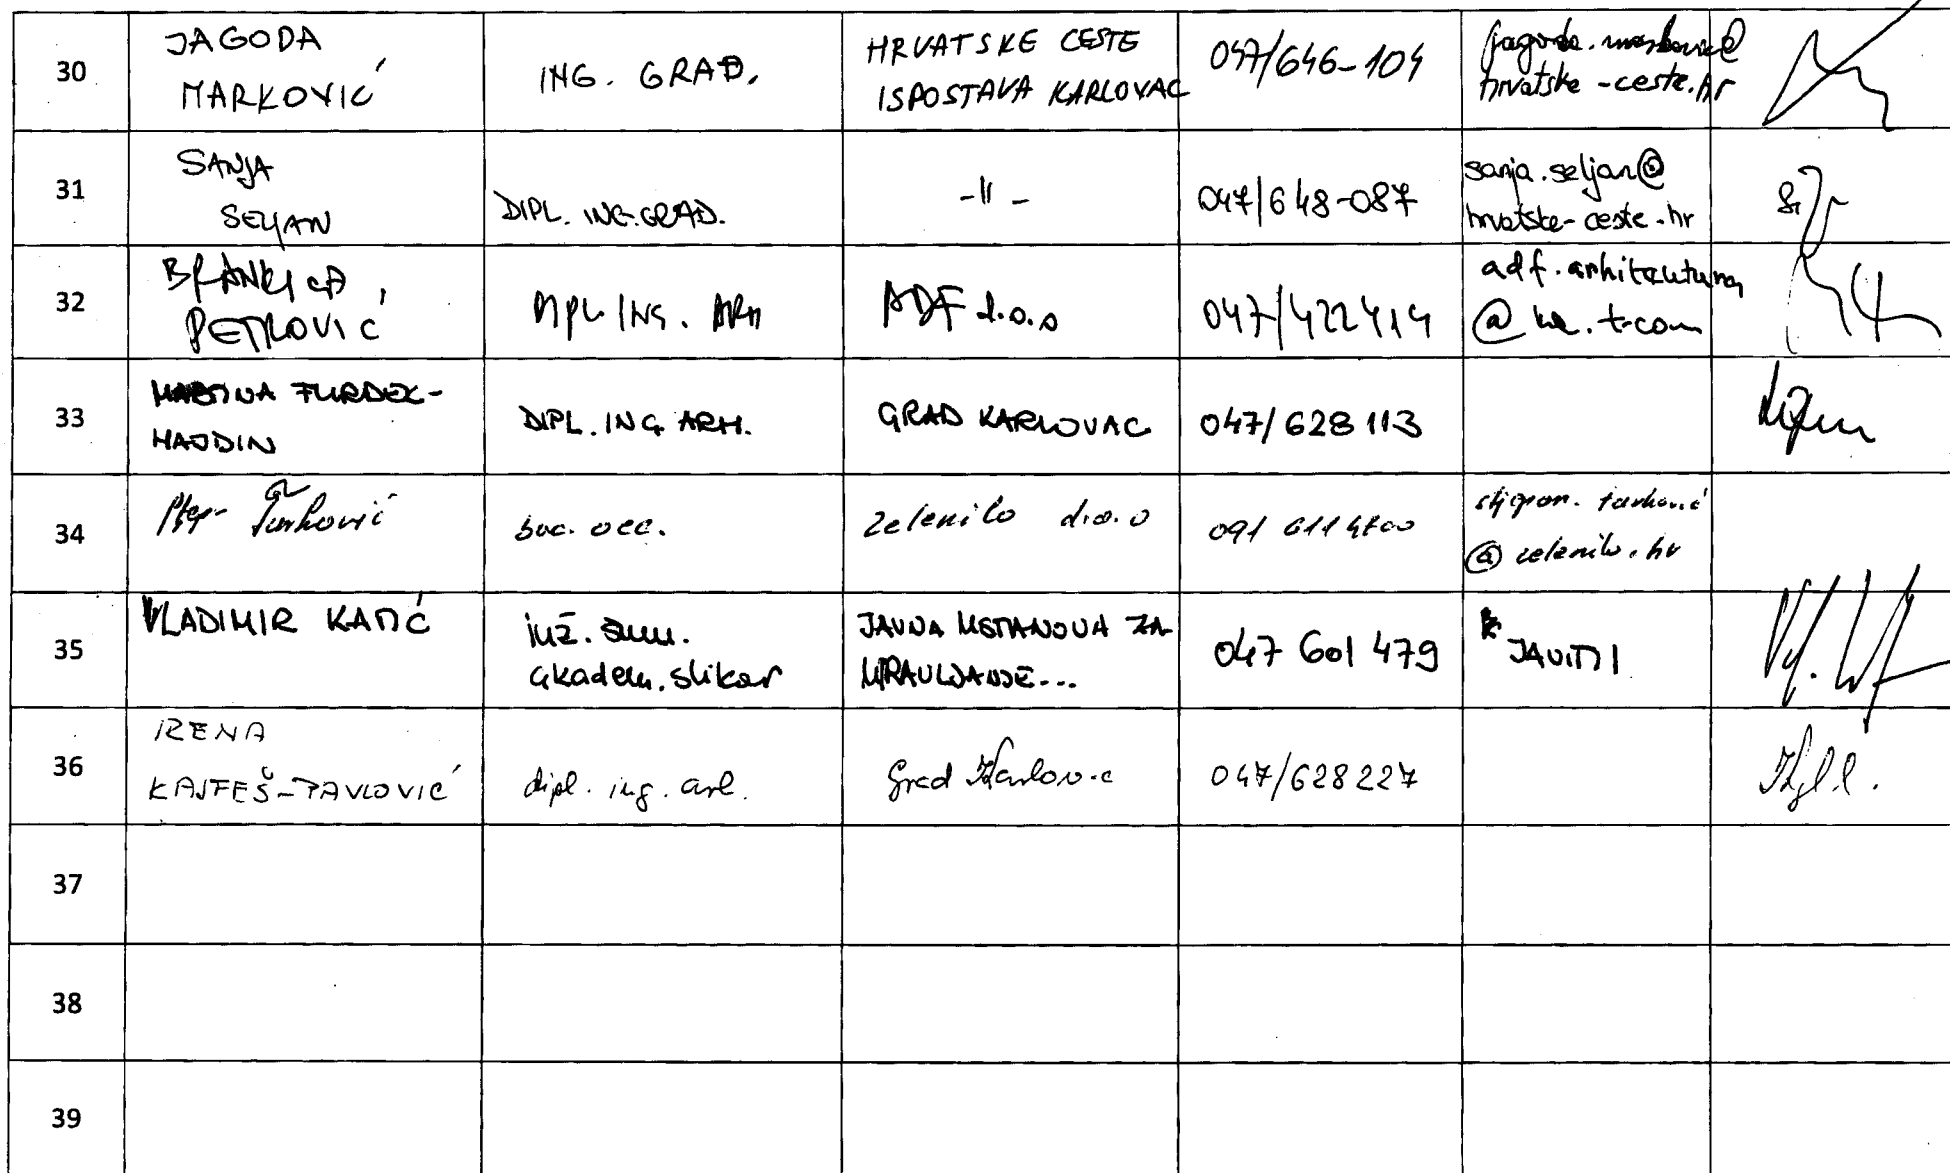 30
JAGODA
MARKOVIĆ
ING. GRAĐ.
HRVATSKE CESTE
ISPOSTAVA KARLOVAC
047/646-104
jagoda.markovic@
hrvatske-ceste.hr
31
SANJA
SELJAN
DIPL. ING.GRAĐ.
-11-
047/648-087
sanja.seljan@
hrvatske-ceste.hr
32
BRANKICA
PETROVIĆ
DIPL ING. ARH
ADF d.o.o
047/422414
adf.arhitektura
@ka.t-com
33
MARTINA FURDEK-
HAJDIN
DIPL. ING ARH.
GRAD KARLOVAC
047/628 113
34
Turković
bac. oec.
Zelenilo d.o.o
091 611 4700
stjepan.turković
@zelenilo.hr
35
VLADIMIR KATIĆ
inž. šum.
akadem. slikar
JAVNA USTANOVA ZA
UPRAVLJANJE...
047 601 479
JAVITI
36
IRENA
KAJFEŠ-PAVLOVIĆ
dipl. ing. arh.
Grad Karlovac
047/628227
37
38
39